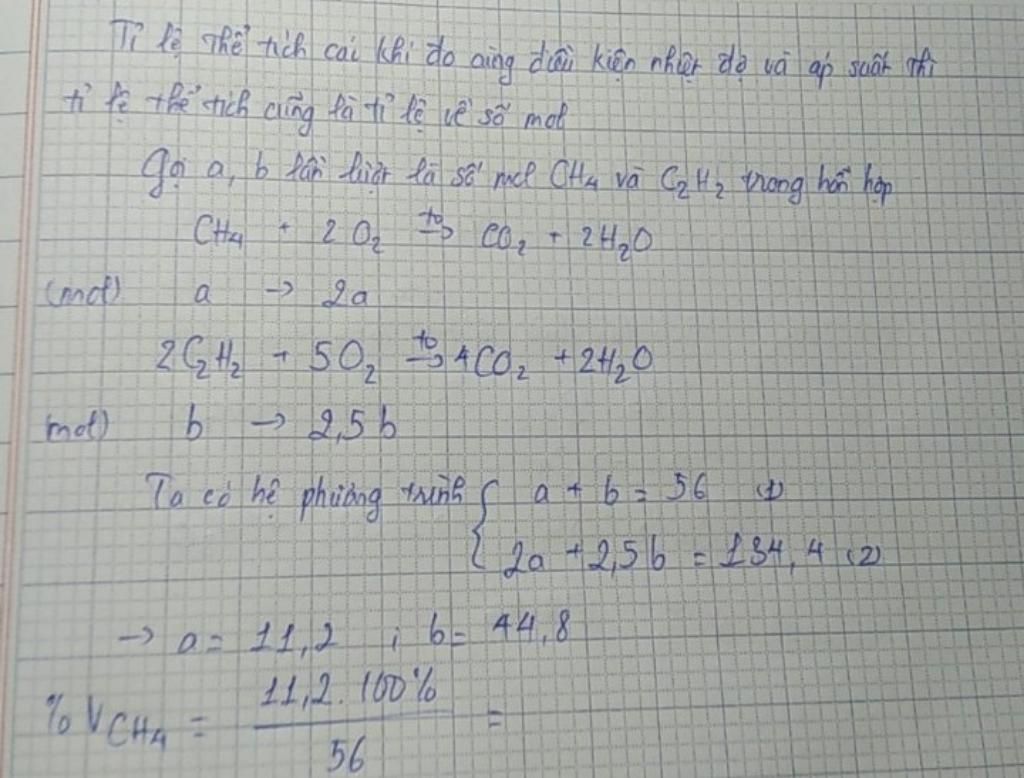 Tỉ lệ thể tích các khí đo cùng điều kiện nhiệt độ và áp suất thì
tỉ lệ thể tích cũng là tỉ lệ về số mol
Gọi a, b lần lượt là số mol CH₄ và C₂H₂ trong hỗn hợp
CH₄ + 2O₂ →(t⁰) CO₂ + 2H₂O
(mol) a → 2a
2C₂H₂ + 5O₂ →(t⁰) 4CO₂ + 2H₂O
mol) b → 2,5b
Ta có hệ phương trình { a + b = 56 (1)
2a + 2,5b = 134,4 (2)
→ a = 11,2 ; b = 44,8
%V CH₄ = 11,2 . 100% / 56 =